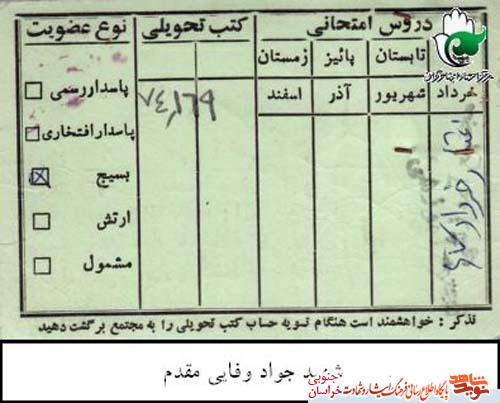 دروس امتحانی
کتب تحویلی
نوع عضویت
تابستان
پائیز
زمستان
خرداد
شهریور
آذر
اسفند
۷۴،۱۶۹
پاسدار رسمی
پاسدار افتخاری
بسیج
ارتش
مشمول
تذکر : خواهشمند است هنگام تسویه حساب کتب تحویلی را به مجتمع برگشت دهید
شهید جواد وفایی مقدم
نوید شاهد
پایگاه اطلاع رسانی فرهنگ ایثار و شهادت خراسان جنوبی